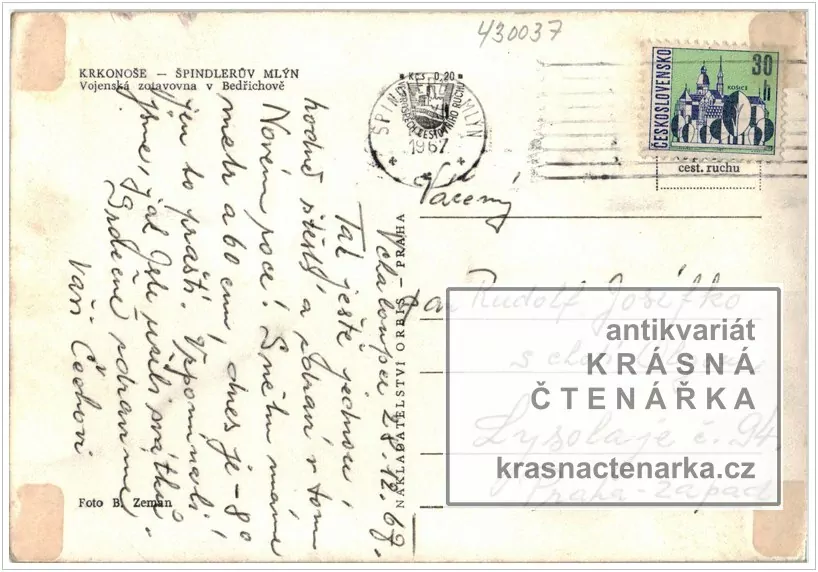 430037
KRKONOŠE – ŠPINDLERŮV MLÝN
Vojenská zotavovna v Bedřichově
Kčs 0,20
ŠPINDLERŮV MLÝN
1967
ČESKOSLOVENSKO
KOŠICE
30
h
cest. ruchu
V chaloupce 28.12.67.
Tak ještě jednou
hodně štěstí a zdraví v tom
Novém roce! Sněhu máme
metr a 60 cm, dnes je -80
jen to praští.
jsme, jak jste svátků
Srdečně zdravíme
Vaši Čechovi
NAKLADATELSTVÍ ORBIS – PRAHA
Vážený
pan Rudolf Josífko
s chotí
Lysolaje č. 94.
Praha-západ
antikvariát
KRÁSNÁ
ČTENÁŘKA
krasnactenarka.cz
Foto B. Zeman